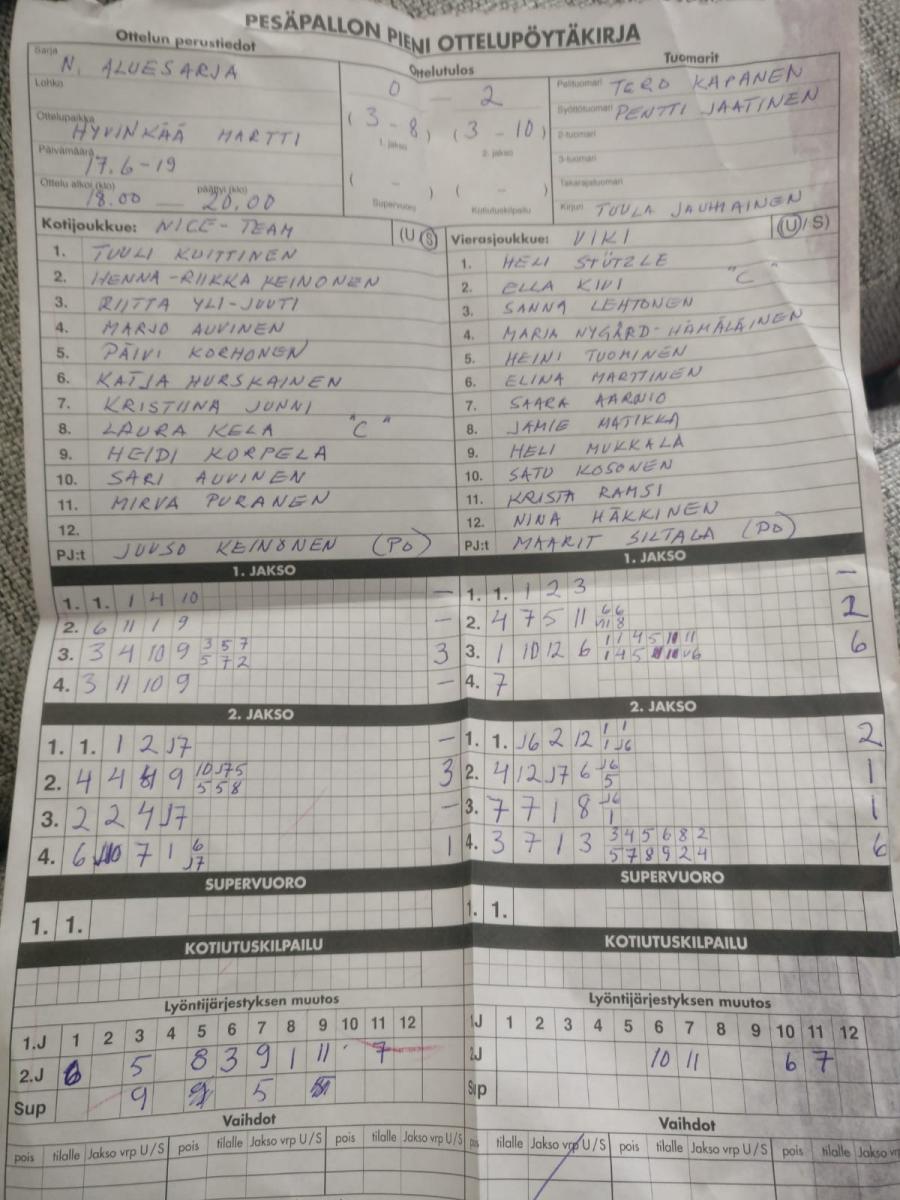 PESÄPALLON PIENI OTTELUPÖYTÄKIRJA
Ottelun perustiedot
Ottelutulos
Tuomarit
Sarja N. ALUESARJA
Lohko
Ottelupaikka HYVINKÄÄ MARTTI
Päivämäärä 17.6-19
Ottelu alkoi (klo) 18.00 päättyi (klo) 20.00
0 — 2
(3-8) (3-10)
1. jakso 2. jakso
( - ) ( - )
Supervuoro Kotiutuskilpailu
Pelituomari TERO KAPANEN
Syöttötuomari PENTTI JAATINEN
2-tuomari
3-tuomari
Takarajatuomari
Kirjuri TUULA JAUHIAINEN
Kotijoukkue: NICE-TEAM (U/S)
1. TUULI KUITTINEN
2. HENNA-RIIKKA KEINONEN
3. RIITTA YLI-JUUTI
4. MARJO AUVINEN
5. PÄIVI KORHONEN
6. KATJA HURSKAINEN
7. KRISTIINA JUNNI
8. LAURA KELA "C"
9. HEIDI KORPELA
10. SARI AUVINEN
11. MIRVA PURANEN
12.
PJ:t JUUSO KEINÖNEN (PO)
Vierasjoukkue: VIKI (U/S)
1. HELI STÜTZLE
2. ELLA KIVI "C"
3. SANNA LEHTONEN
4. MARIA NYGÅRD-HÄMÄLÄINEN
5. HEINI TUOMINEN
6. ELINA MARTTINEN
7. SAARA AARNIO
8. JAMIE MATIKKA
9. HELI MUKKALA
10. SATU KOSONEN
11. KRISTA RAMSI
12. NINA HÄKKINEN
PJ:t MAARIT SILTALA (PO)
1. JAKSO
1. 1. 1 4 10 –
2. 6 11 1 9 –
3. 3 4 10 9 3 5 7 3
5 7 2
4. 3 11 10 9 –
1. JAKSO
1. 1. 1 2 3 –
2. 4 7 5 11 6 6 2
8
3. 1 10 12 6 1 1 4 5 10 11 6
1 4 5
4. 7
2. JAKSO
1. 1. 1 2 J7 –
2. 4 4 9 10 J7 5 3
5 5 8
3. 2 2 4 J7 –
4. 6 7 1 6 1
J7
2. JAKSO
1. 1. J6 2 12 1 1 2
1 J6
2. 4 12 J7 6 J6 1
5
3. 7 7 1 8 J6 1
1
4. 3 7 1 3 3 4 5 6 8 2 6
5 7 8 9 2 4
SUPERVUORO
1. 1.
SUPERVUORO
1. 1.
KOTIUTUSKILPAILU
KOTIUTUSKILPAILU
Lyöntijärjestyksen muutos
1.J 1 2 3 4 5 6 7 8 9 10 11 12
2.J 6 5 8 3 9 1 11 7
Sup 9 5
Lyöntijärjestyksen muutos
1J 1 2 3 4 5 6 7 8 9 10 11 12
2J 10 11 6 7
Sup
Vaihdot
pois tilalle Jakso vrp U/S pois tilalle Jakso vrp U/S pois tilalle Jakso vrp U/S
Vaihdot
pois tilalle Jakso vrp U/S pois tilalle Jakso vrp U/S pois tilalle Jakso vrp